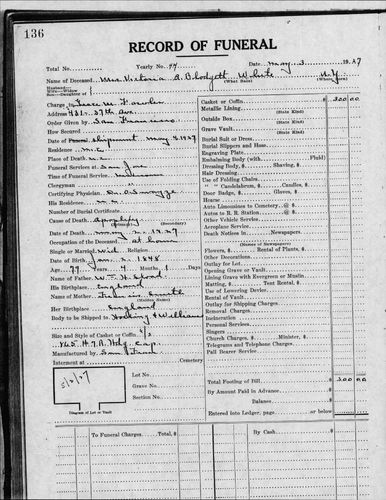 136
RECORD OF FUNERAL
Total No. Yearly No. 77 Date May 3 1927
Name of Deceased Mrs Victoria A. Blodgett White N.Y.
(What Race) (Where)
Husband—
Wife—Widow
Son—Daughter of
Charge
Address 431- 27th Ave.
Order Given by San Francisco
How Secured
Date of Funeral shipment May 4 1927
Residence N.C.
Place of Death N.C.
Funeral Services at San Jose
Time of Funeral Service
Clergyman
Certifying Physician Dr.
His Residence N.C.
Number of Burial Certificate
Cause of Death Apoplexy
(Primary) (Secondary)
Date of Death May 2 1927
Occupation of the Deceased at home
Single or Married Wid Religion
Date of Birth Jan. 2 - 1848
Aged 79 Years 4 Months 1 Days
Name of Father
His Birthplace England
Name of Mother Smith
(Maiden Name)
Her Birthplace England
Body to be Shipped to Hocking & Williams
Size and Style of Casket or Coffin
Manufactured by San Fran
Interment at Cemetery
Lot No.
Grave No.
Section No.
Diagram of Lot or Vault
Casket or Coffin 300 00
Metallic Lining
(State Kind)
Outside Box
(State Kind)
Grave Vault
(State Kind)
Burial Suit or Dress
Burial Slippers and Hose
Engraving Plate
Embalming Body (with Fluid)
Dressing Body, $ Shaving, $
Hair Dressing
Use of Folding Chairs
" " Candelabrum, $ Candles, $
Door Badge, $ Gloves, $
Hearse
Auto Limousines to Cemetery @ $
Autos to R. R. Station @ $
Other Vehicle Service
Aeroplane Service
Death Notices in Newspapers
(Names of Newspapers)
Flowers, $ Rental of Plants, $
Other Decorations
Outlay for Lot
Opening Grave or Vault
Lining Grave with Evergreen or Muslin
Matting, $ Tent Rental, $
Use of Lowering Device
Rental of Vault
Outlay for Shipping Charges
Removal Charges
Incineration
Personal Services
Singers
Church Charges, $ Minister, $
Telegrams and Telephone Charges
Pall Bearer Service
Total Footing of Bill $ 300 00
By Amount Paid in Advance
Balance
Entered into Ledger, page or below
To Funeral Charges Total, $ By Cash $